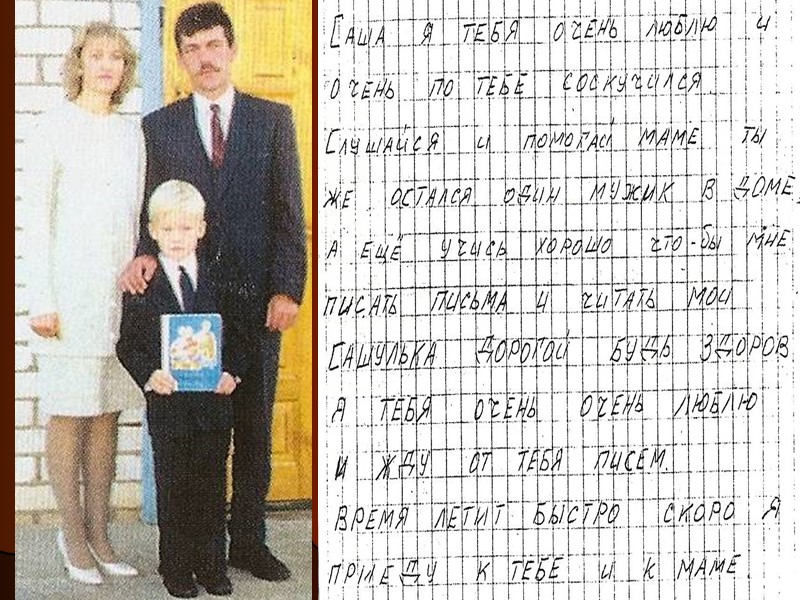 САША Я ТЕБЯ ОЧЕНЬ ЛЮБЛЮ И
ОЧЕНЬ ПО ТЕБЕ СОСКУЧИЛСЯ
СЛУШАЙСЯ И ПОМОГАЙ МАМЕ ТЫ
ЖЕ ОСТАЛСЯ ОДИН МУЖИК В ДОМЕ.
А ЕЩЁ УЧИСЬ ХОРОШО ЧТО-БЫ МНЕ
ПИСАТЬ ПИСЬМА И ЧИТАТЬ МОИ
САШУЛЬКА ДОРОГОЙ БУДЬ ЗДОРОВ
Я ТЕБЯ ОЧЕНЬ ОЧЕНЬ ЛЮБЛЮ
И ЖДУ ОТ ТЕБЯ ПИСЕМ.
ВРЕМЯ ЛЕТИТ БЫСТРО СКОРО Я
ПРИЕДУ К ТЕБЕ И К МАМЕ.